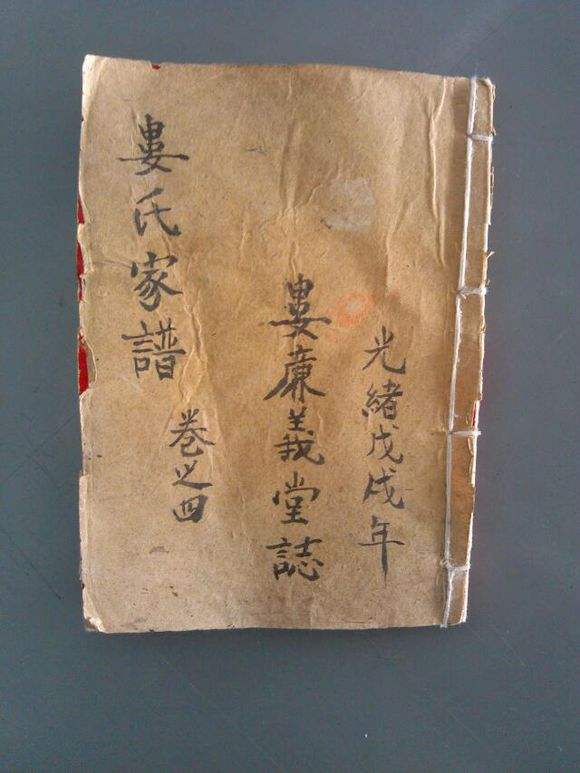 光緒戊戌年
婁廉義堂誌
婁氏家譜
卷之四